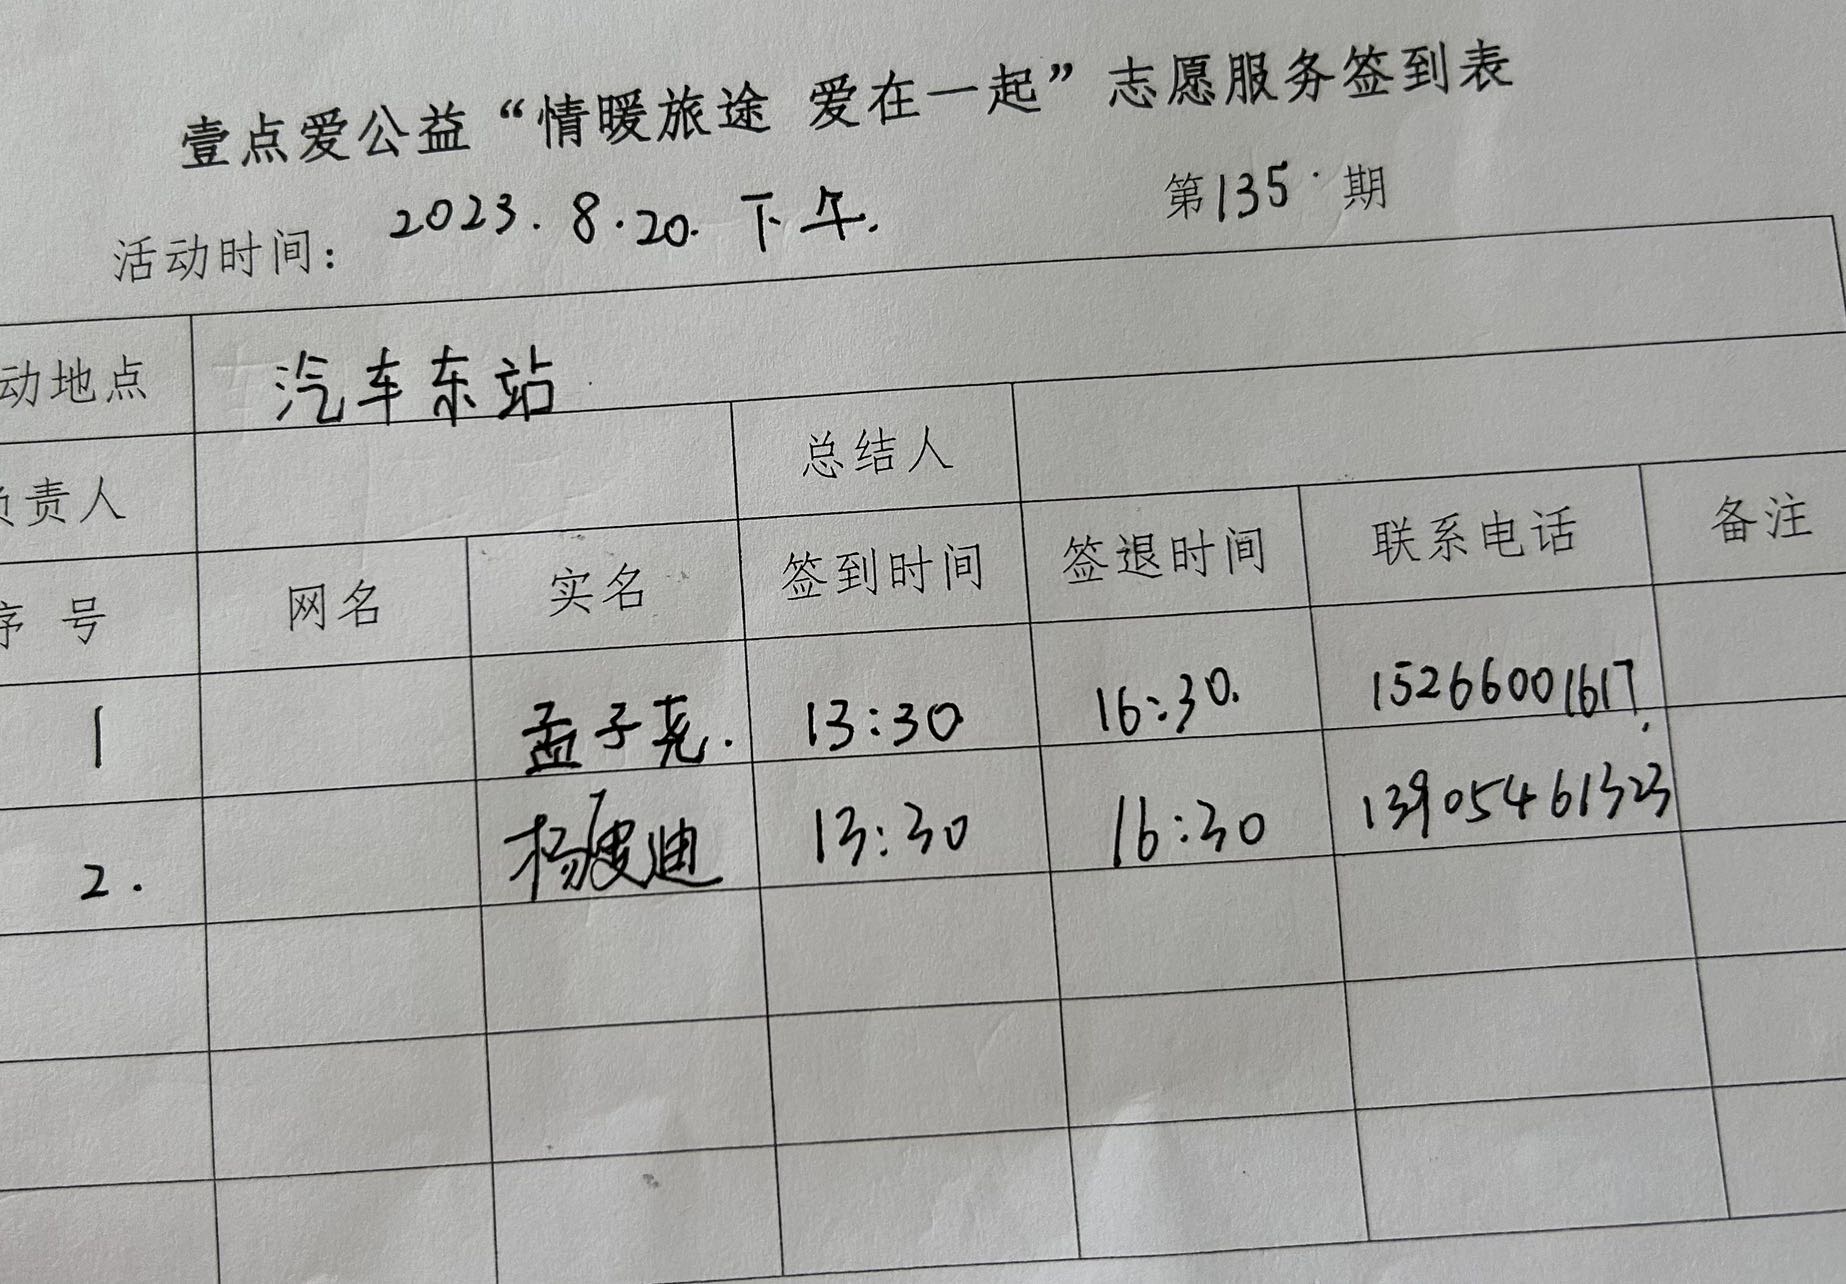 壹点爱公益“情暖旅途 爱在一起”志愿服务签到表
活动时间: 2023.8.20.下午. 第135期
动地点 汽车东站
负责人 总结人
序号 网名 实名 签到时间 签退时间 联系电话 备注
1 孟子尧. 13:30 16:30. 15266001617.
2. 杨 迪 13:30 16:30 13905461323